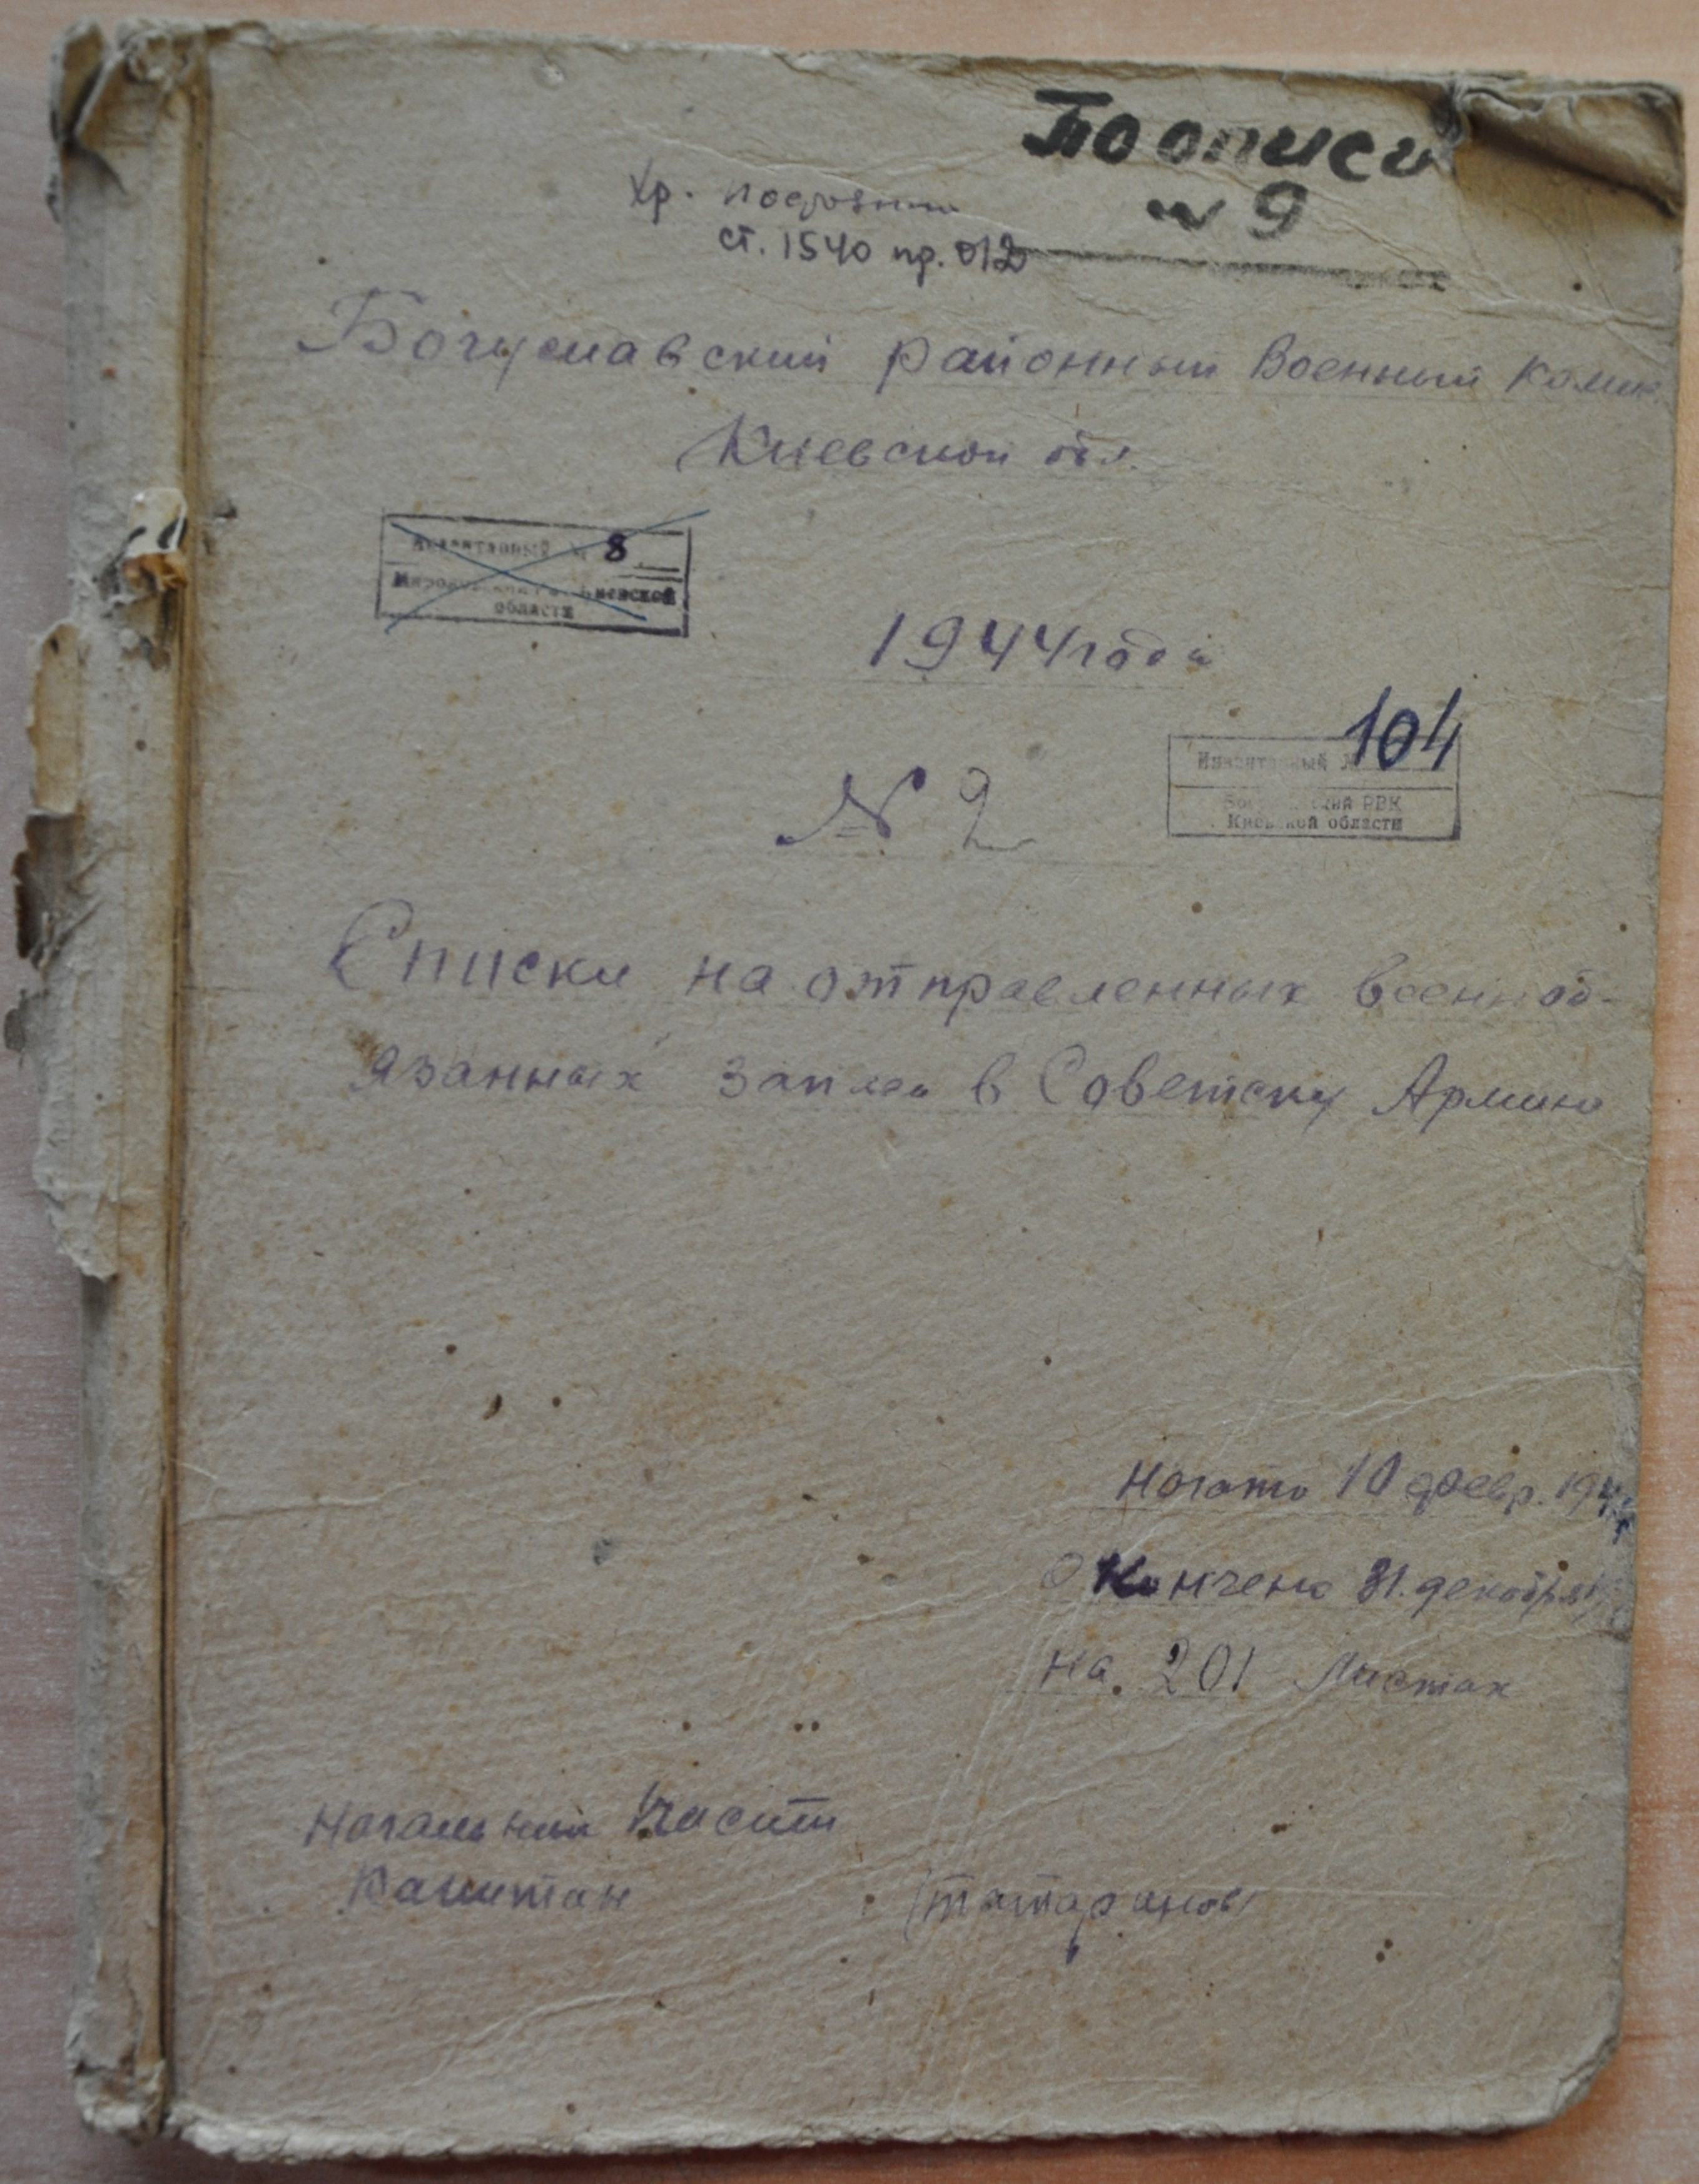 По описи
№ 9
Хр. постоянно
ст. 1540 пр. 012
Богуславский районный военный комис.
Киевской обл.
Инвентарный № 8
Киевской
области
1944 года
Инвентарный № 104
Богуславский РВК
Киевской области
№ 2
Списки на отправленных военноб-
язанных запаса в Советску Армию
Начато 10 февр. 194
Окончено 31. декабря
на 201 листах
Начальник I части
Капитан (Татаринов)